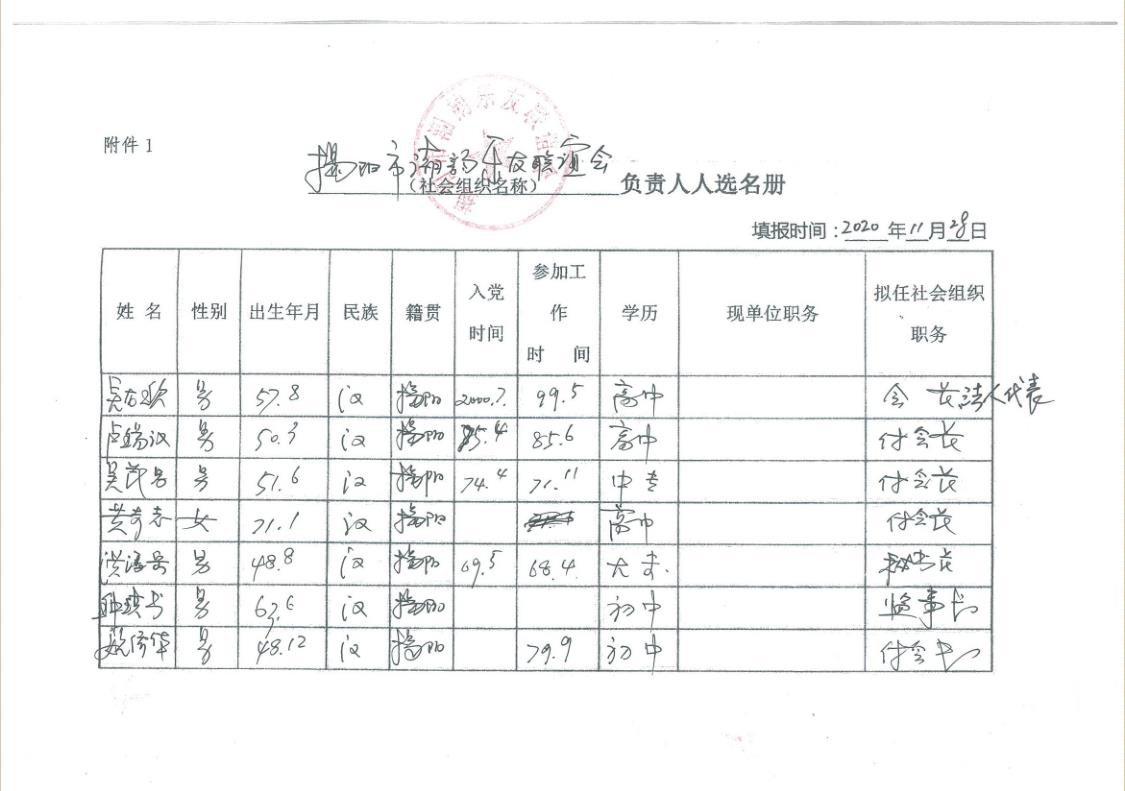 附件 1
揭阳市潮韵乐友联谊会
（社会组织名称） 负责人人选名册
填报时间：2020 年 11 月 28 日
姓 名 性别 出生年月 民族 籍贯 入党时间 参加工作时 间 学历 现单位职务 拟任社会组织职务
男 57.8 汉 揭阳 2000.7. 99.5 高中 会长法人代表
卢锡汉 男 50.3 汉 揭阳 75.4 85.6 高中 付会长
吴茂 男 51.6 汉 揭阳 74.4 71.11 中专 付会长
黄 女 71.1 汉 揭阳 高中 付会长
洪 男 48.8 汉 揭阳 69.5 68.4. 大专. 秘书长
男 63.6 汉 揭阳 初中 监事长
男 48.12 汉 揭阳 79.9 初中 付会长